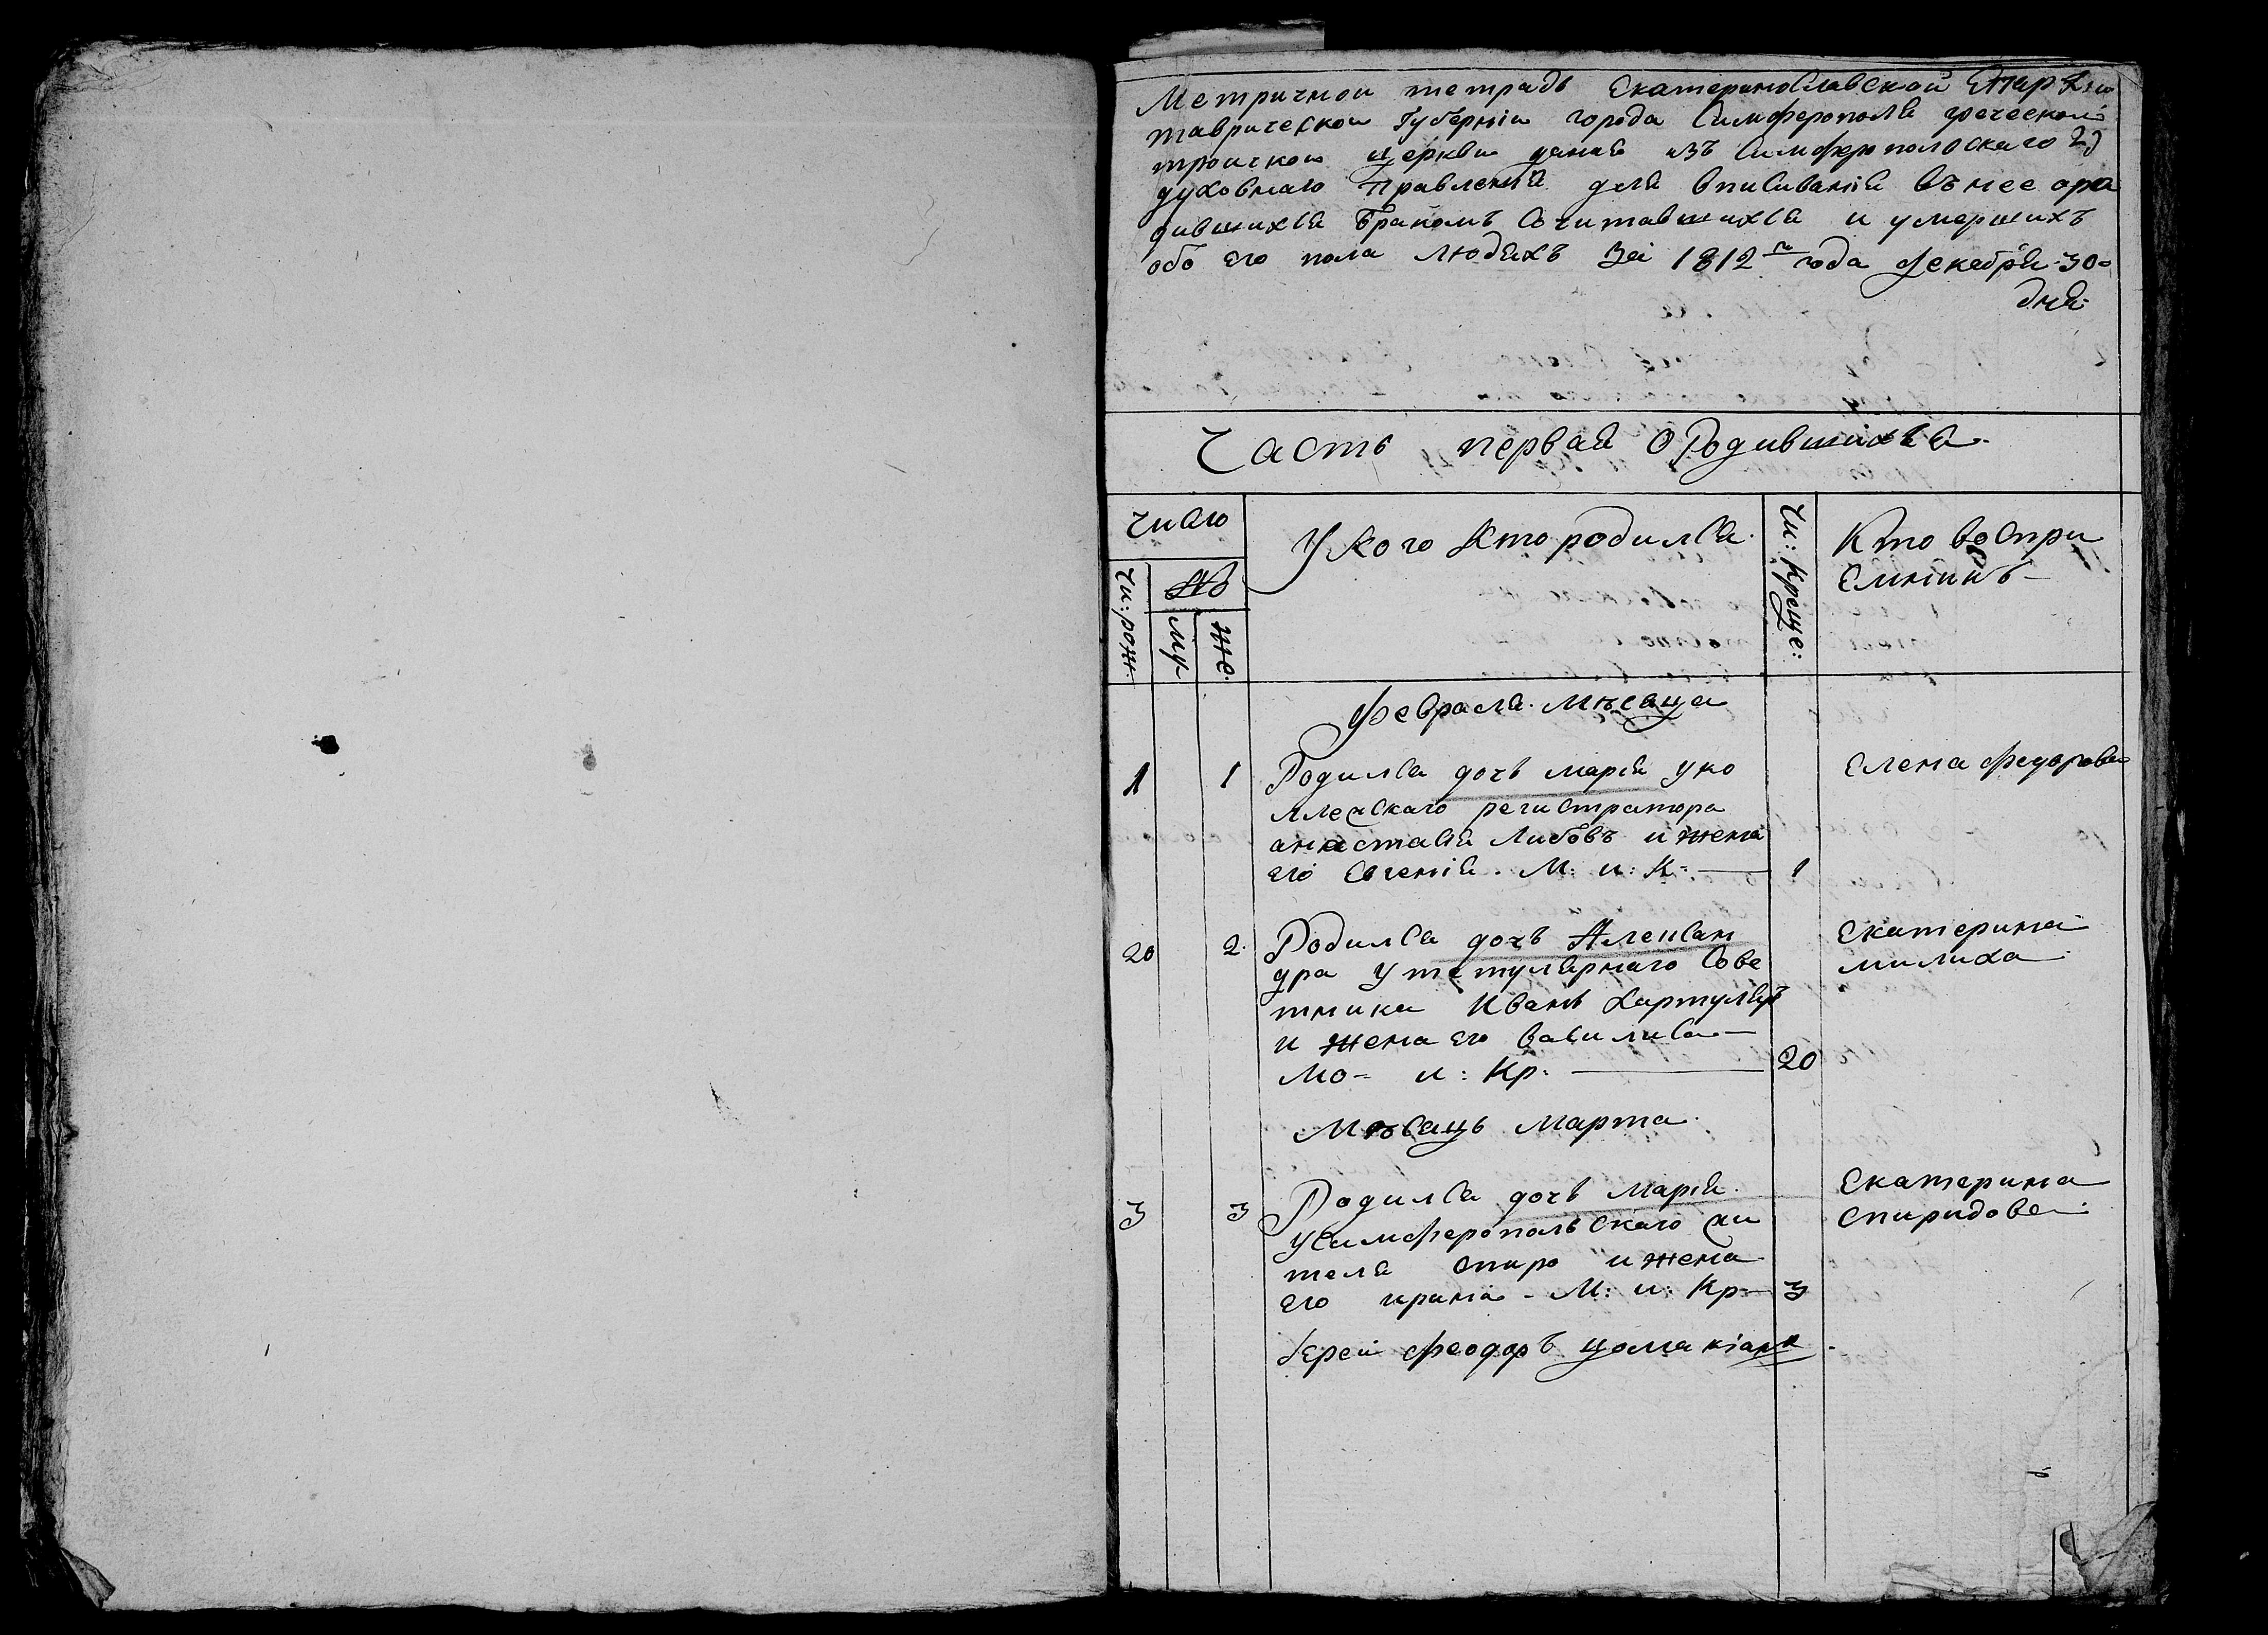 Метричнои тетрадь Екатеринославской Епархіи
таврическои Губерніи города Симферополя греческой
троичкои церкви даная изъ Симферополоскаго
духовнаго правленія для вписиванія въ нее оро
дившихся бракомъ Сочитавшихся и умершихъ
обо его пола людяхъ За 1812 го года декабря 30-
дня-
Часть первая О Родившихся
число
У кого кто родился
Чи: креще:
Кто воспри
емникъ-
Чи: рож
№
му
же.
февраля мѣсяца
1 1 Родился дочь марія уко
ллежскаго регистратора
анастасія Либовъ и жена
его Евгенія. М: и: К- 1
Елена федорова
20 2. Родился дочь Алексан
дра у тетулярнаго Сове
тника Иванъ
и жена его василиса
мо- и: Кр. 20
Екатерина
милиха
Мѣсяць Марта
3 3 Родился дочь марія
у Симферопольскаго жи
теля спиро и жена
его ирина - М: и: Кр- 3
Екатерина
спиридова
Іерей феодоръ